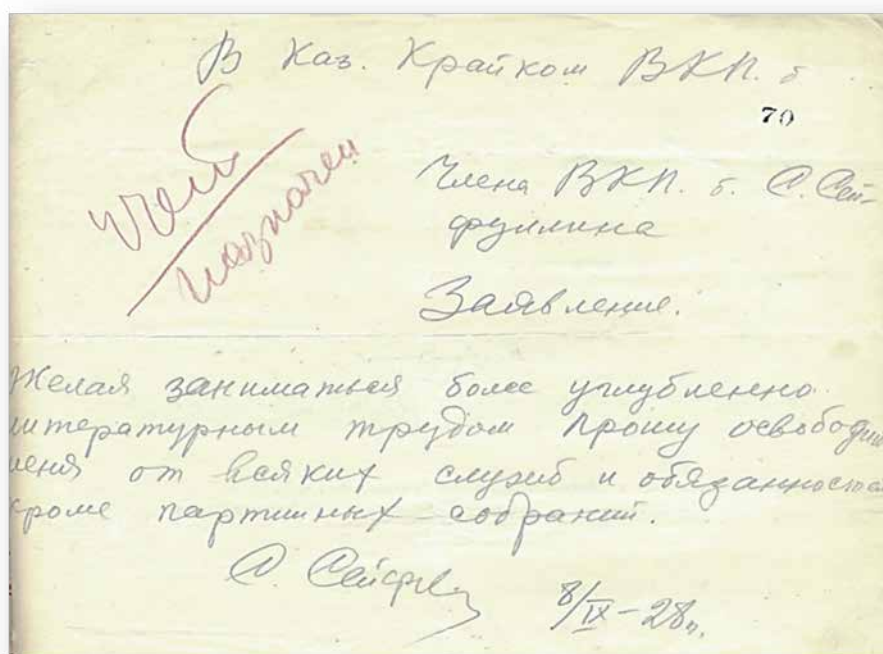 В Каз. Крайком ВКП. б
70
Члена ВКП. б. С. Сей-
фуллина
назначен
Заявление.
Желая заниматься более углубленно
литературным трудом прошу освободить
меня от всяких служб и обязанностей
кроме партийных собраний.
С. Сейфул
8/IX-28г.